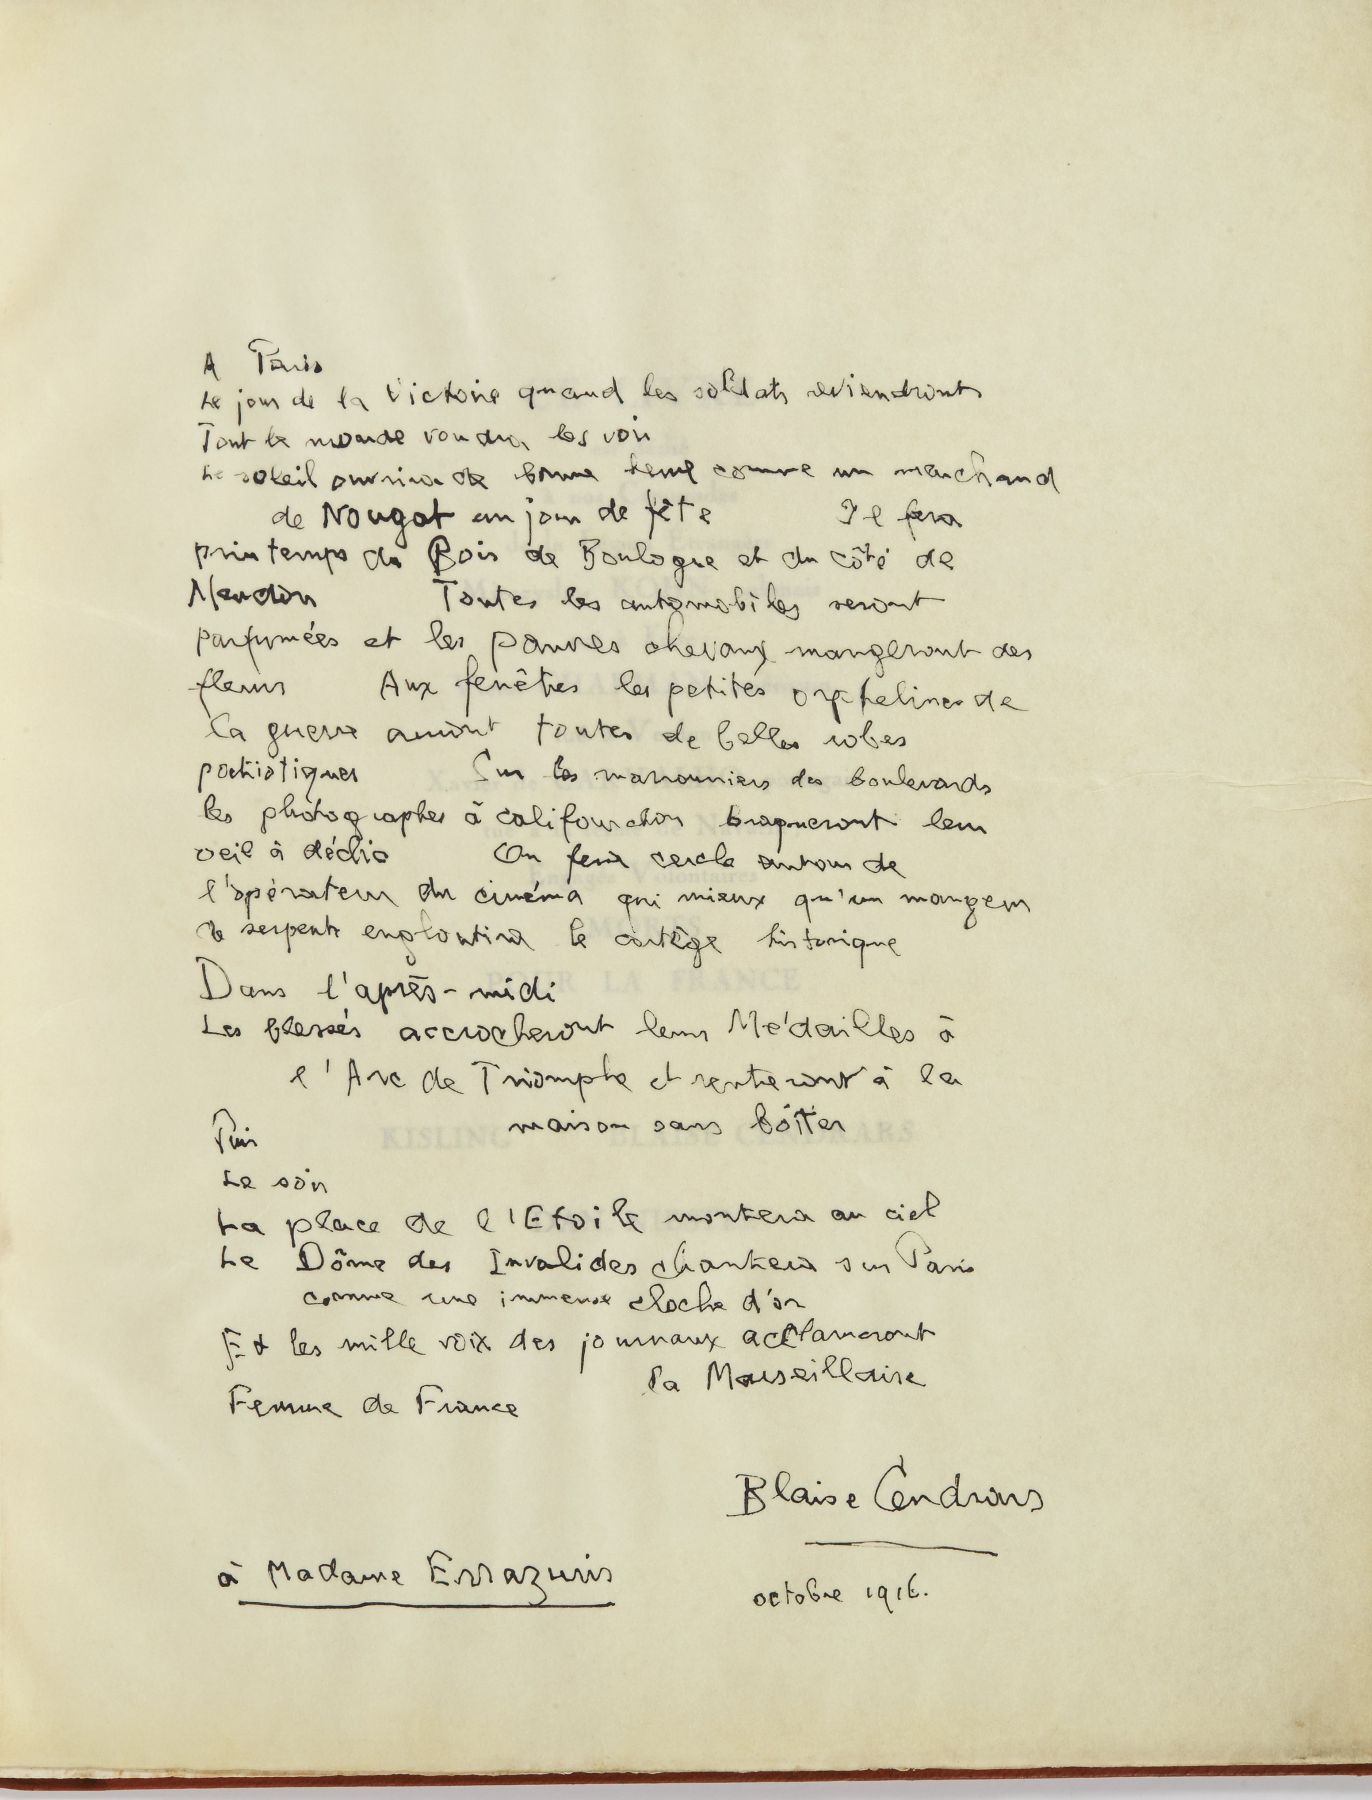 A Paris
Le jour de la Victoire quand les soldats reviendront
Tout le monde voudra les voir
Le soleil ouvrira de bonne heure comme un marchand
de Nougat un jour de fête Il fera
printemps du Bois de Boulogne et du côté de
Meudon Toutes les automobiles seront
parfumées et les pauvres chevaux mangeront des
fleurs Aux fenêtres les petites orphelines de
la guerre auront toutes de belles robes
patriotiques Sur les marronniers des boulevards
les photographes à califourchon braqueront leur
oeil à déclic On fera cercle autour de
l'opérateur du cinéma qui mieux qu'un mangeur
de serpents engloutira le cortège historique
Dans l'après-midi
Les blessés accrocheront leurs Médailles à
l'Arc de Triomphe et rentreront à la
maison sans bôiter
Puis
Le soir
La place de l'Etoile montera au ciel
Le Dôme des Invalides chantera sur Paris
comme une immense cloche d'or
Et les mille voix des journaux acclameront
la Marseillaise
Femme de France
Blaise Cendrars
à Madame Errazuris
octobre 1916.
POUR LA FRANCE
KISLING